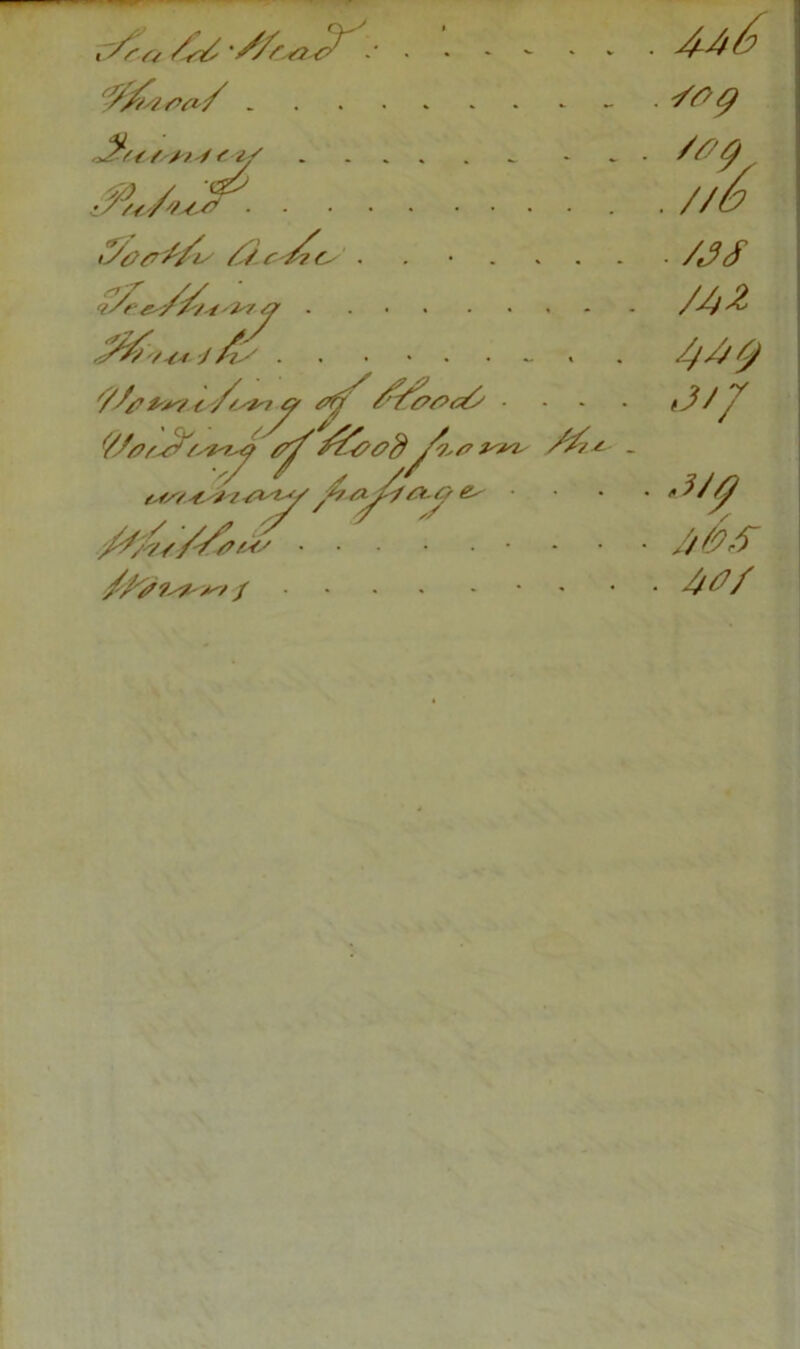 Scal'd Head . . . . . . . . 446
Throat . . . . . . . . . . 109
Quinsey . . . . . . . . . 109
Pulse . . . . . . . . . . 116
Tooth Ache . . . . . . . . 138
Teething . . . . . . . . . 142
Thrush . . . . . . . . . 449
Vomiting of Blood . . . . 317
Voiding of Blood from the
urinary passage . . . . 319
Whitlow . . . . . . . . . 465
Worms . . . . . . . . . 401